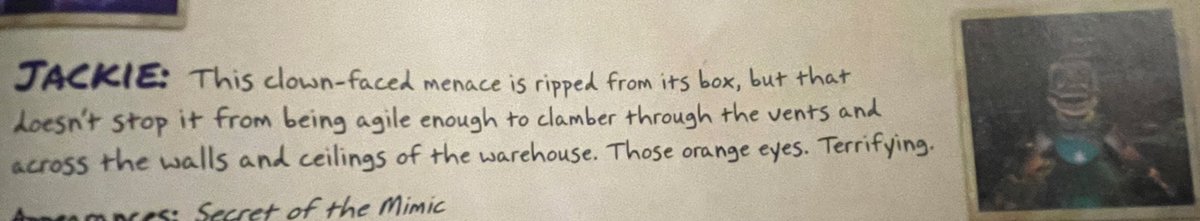 JACKIE: This clown-faced menace is ripped from its box, but that
doesn't stop it from being agile enough to clamber through the vents and
across the walls and ceilings of the warehouse. Those orange eyes. Terrifying.
Appearances: Secret of the Mimic